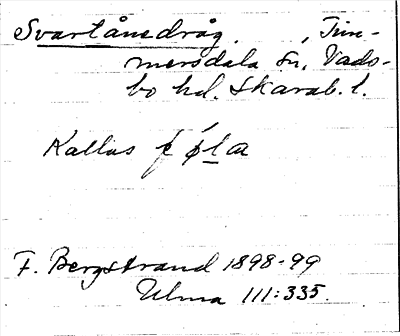 Svartånsdråg. , Tim-
mersdala sn, Vads-
bo hd. Skarab. l.
Kallas
F. Bergstrand 1898-99
Ulma 111:335.